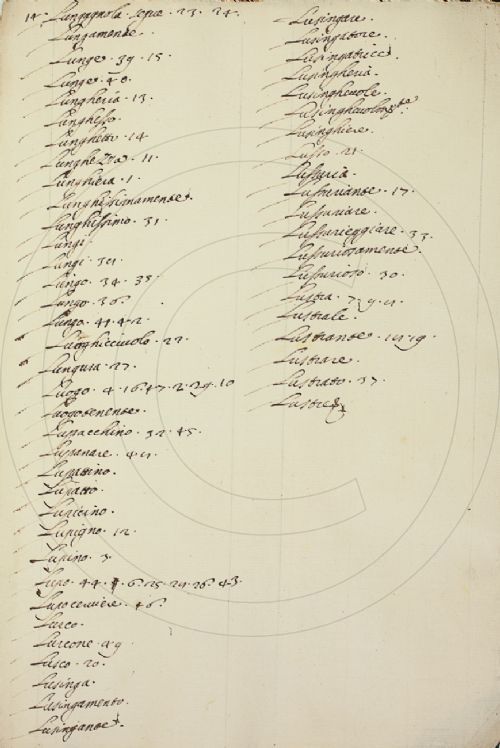 Lungagnola segue. 23. 24.
Lungamente.
Lunge. 39. 15.
Lunge.
Lungheria. 13.
Lunghesso.
Lunghetto. 14
Lunghezza. 11.
Lunghiera. 1.
Lunghissimamente.
Lunghissimo. 31.
Lungi.
Lungi.
Lungo. 34. 35.
Lungo. 36.
Lungo. 41. 42.
Luoghicciuolo. 22.
Lungura. 27.
Luogo. 4. 16. 47. 2. 29. 10
Luogotenente.
Lupacchino. 32. 45.
Lupanare.
Lupattino.
Lupatto.
Lupicino.
Lupigno. 12.
Lupino. 3.
Lupo. 44. 6. 25. 29. 26. 43.
Lupocerviere. 46.
Lurco.
Lurcone. 49
Lusco. 20.
Lusinga.
Lusingamento.
Lusingante.
Lusingare.
Lusingatore.
Lusingatrice.
Lusingheria.
Lusinghevole.
Lusinghevolmte.
Lusinghiere.
Lusso. 21.
Lussuria.
Lussuriante. 17.
Lussuriare.
Lussureggiare. 33.
Lussuriosamente.
Lussurioso. 30.
Lustra. 7. 9.
Lustrale.
Lustrante. 19.
Lustrare.
Lustrato. 37.
Lustre